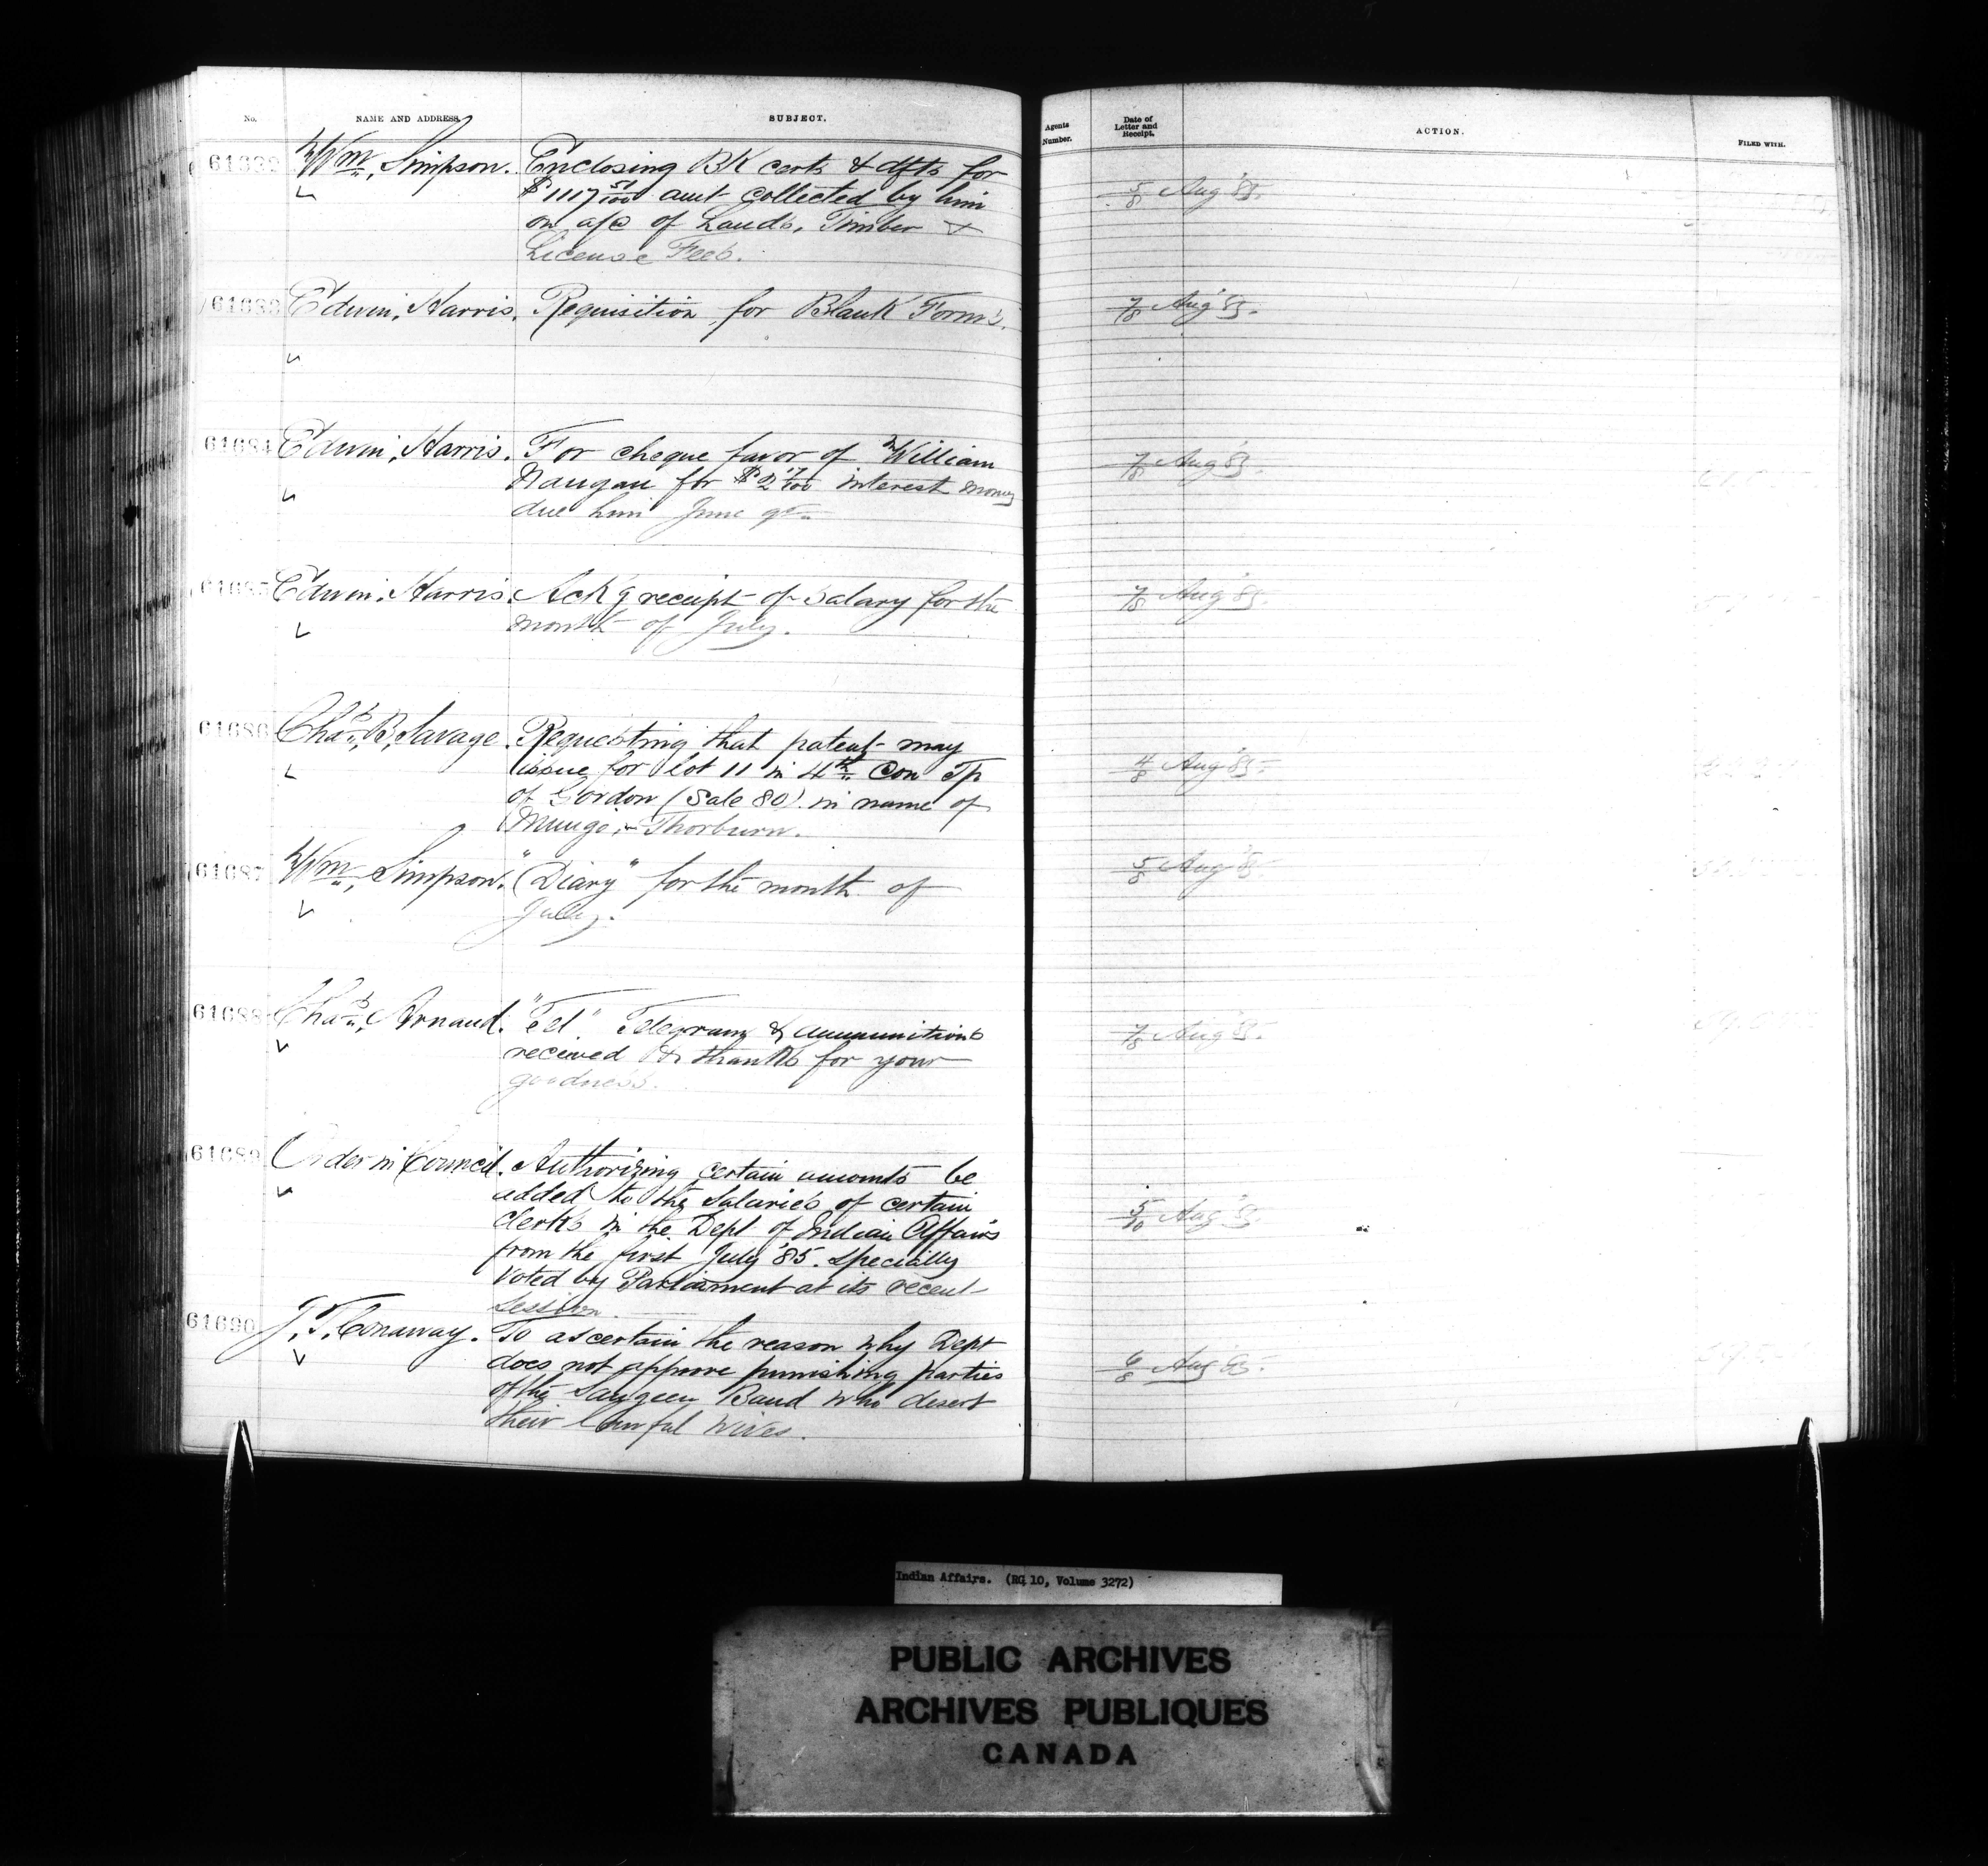 No. NAME AND ADDRESS. SUBJECT.
Agents Number. Date of Letter and Receipt. ACTION. FILED WITH.
61682 Wm. Simpson. Enclosing BK certs & dfts for
$1117 51/100 amt collected by him
on a/c of Lands, Timber &
License Fees.
5/8 Aug '85.
61683 Edwin Harris. Requisition for Blank Forms.
7/8 Aug '85.
61684 Edwin Harris. For cheque favor of William
for $2 17/100 interest money
due him June qr.
7/8 Aug '85.
61685 Edwin Harris. Ack'g receipt of Salary for the
month of July.
7/8 Aug '85.
61686 Chas. B. Savage. Requesting that patent may
issue for lot 11 in 4th Con Tp
of Gordon (Sale 80) in name of
Thorburn.
4/8 Aug '85.
61687 Wm. Simpson. "Diary" for the month of
July.
5/8 Aug '85.
61688 Chas. Arnaud. "Tel" Telegram & ammunitions
received & thanks for your
goodness.
7/8 Aug '85.
61689 Order in Council. Authorizing certain amounts be
added to the Salaries of certain
clerks in the Dept of Indian Affairs
from the first July '85. Specially
voted by Parliament at its recent
session.
5/10 Aug '85.
61690 J. T. Conaway. To ascertain the reason why Dept
does not approve punishing parties
of the Saugeen Band who desert
their lawful wives.
6/8 Aug '85.
Indian Affairs. (RG 10, Volume 3272)
PUBLIC ARCHIVES
ARCHIVES PUBLIQUES
CANADA